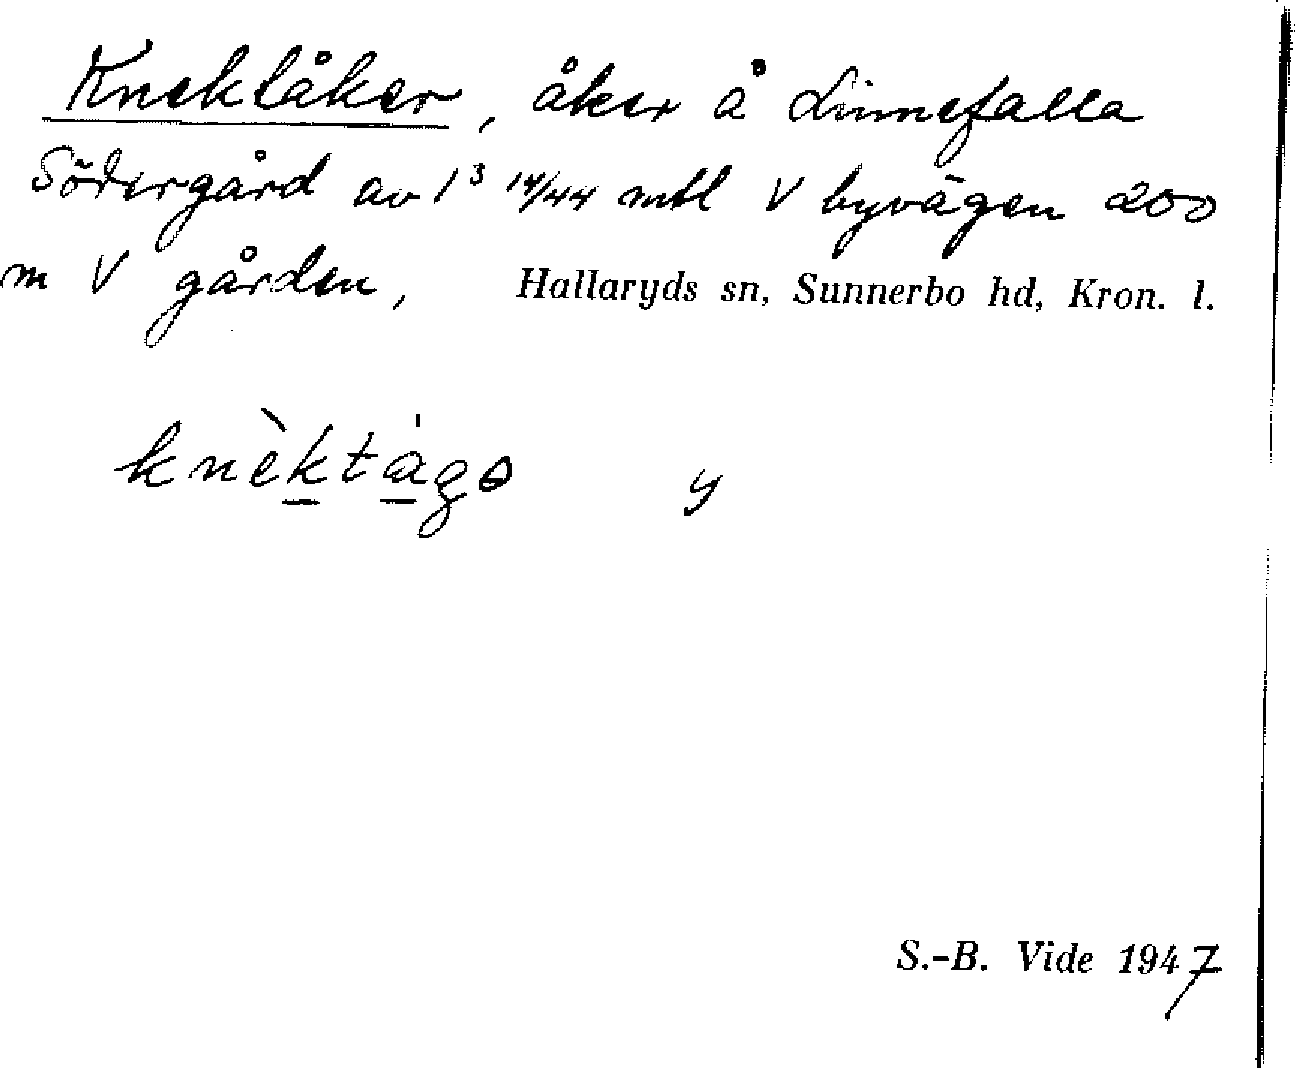 Knektåker, åker å Linnefalla
Södergård av 1³ 14/44 mtl V byvägen 200
m V gården, Hallaryds sn, Sunnerbo hd, Kron. l.
knèktágə y
S.-B. Vide 1947